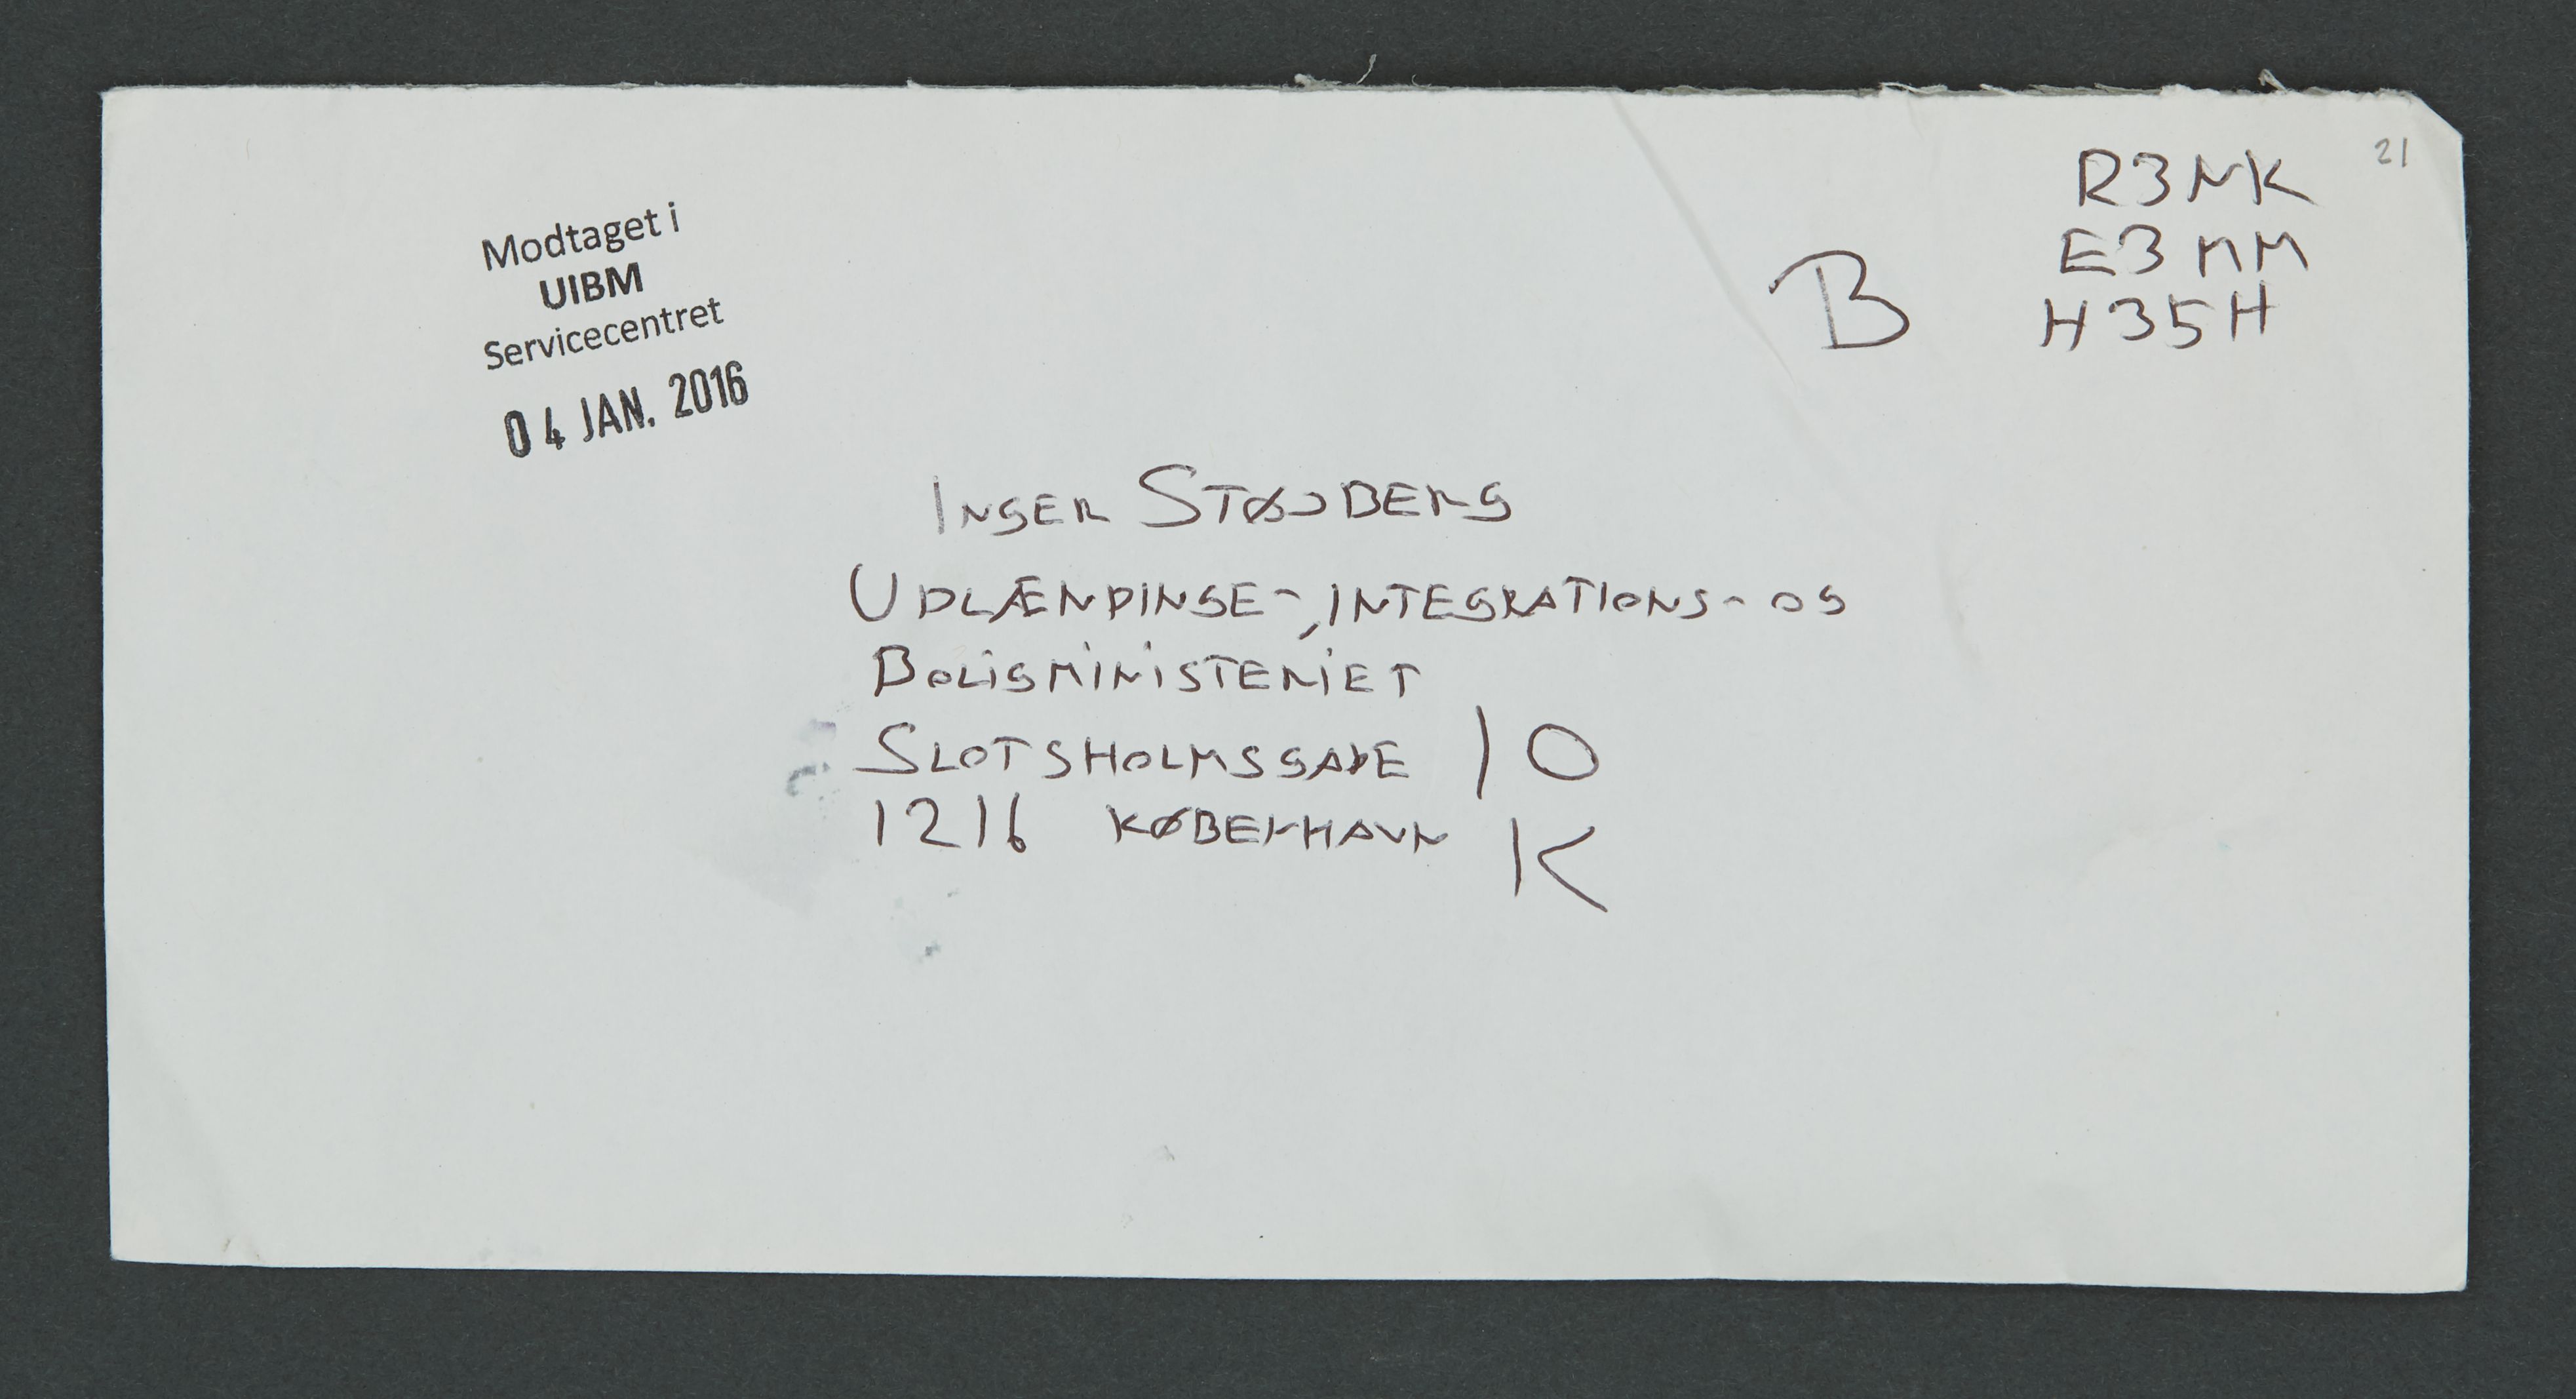 21
R3NK
E3MM
H35H
B
Modtaget i
UIBM
Servicecentret
04 JAN. 2016
INGER STØJBERG
UDLÆNDINGE-, INTEGRATIONS- OG
BOLIGMINISTERIET
SLOTSHOLMSGADE 10
1216 KØBENHAVN K